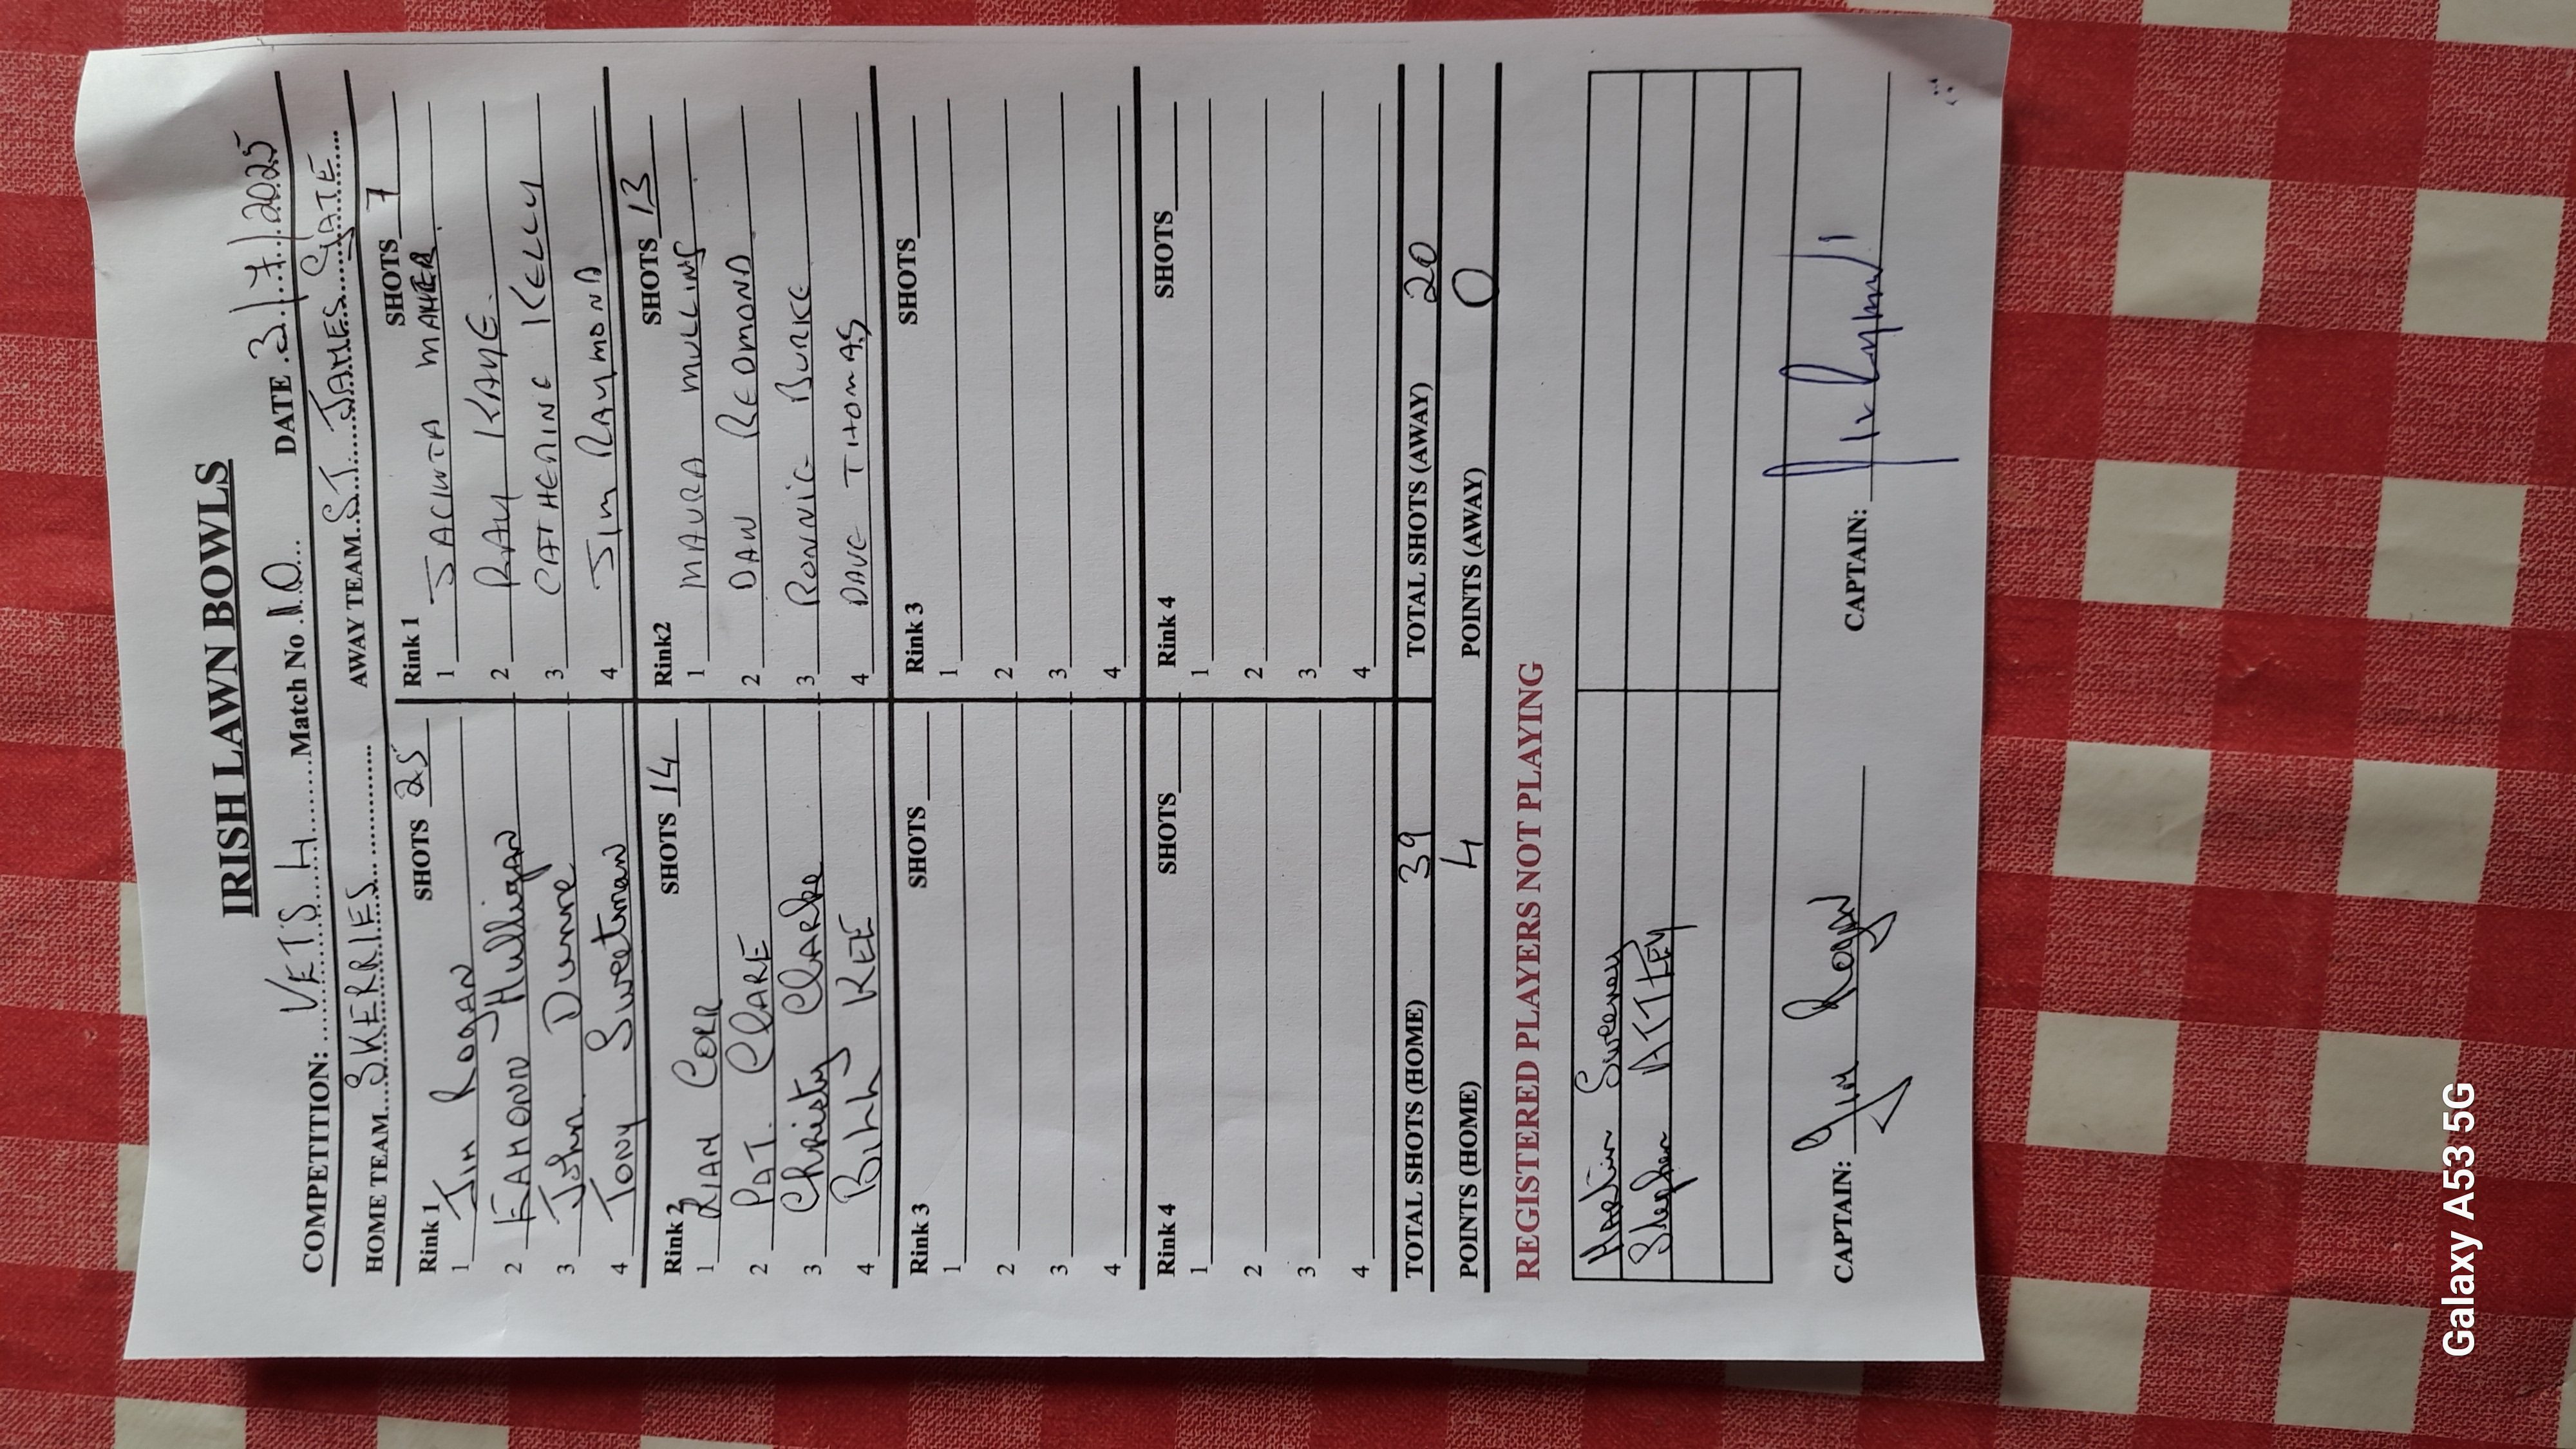 IRISH LAWN BOWLS
COMPETITION: VETS 4 Match No 10 DATE 3/7/2025
HOME TEAM SKERRIES AWAY TEAM ST JAMES GATE
Rink 1 SHOTS 25 Rink 1 SHOTS 7
1 Jim Rogan 1 JACINTA MAHER
2 EAMONN Hulligan 2 RAY KAYE.
3 John Dunne 3 CATHERINE KELLY
4 Tony Sweetman 4 Jim RAYMOND
Rink 2 SHOTS 14 Rink2 SHOTS 13
1 LIAM CORR 1 MAURA MULLINS
2 PAT CLARE 2 DAN REDMOND
3 Christy Clarke 3 RONNIE BURKE
4 Billy KEE 4 DAVE THOMAS
Rink 3 SHOTS Rink 3 SHOTS
1 1
2 2
3 3
4 4
Rink 4 SHOTS Rink 4 SHOTS
1 1
2 2
3 3
4 4
TOTAL SHOTS (HOME) 39 TOTAL SHOTS (AWAY) 20
POINTS (HOME) 4 POINTS (AWAY) 0
REGISTERED PLAYERS NOT PLAYING
MARTIN Sweeney
Stephen ATTLEY
CAPTAIN: Jim Rogan CAPTAIN: Jim Raymond
Galaxy A53 5G